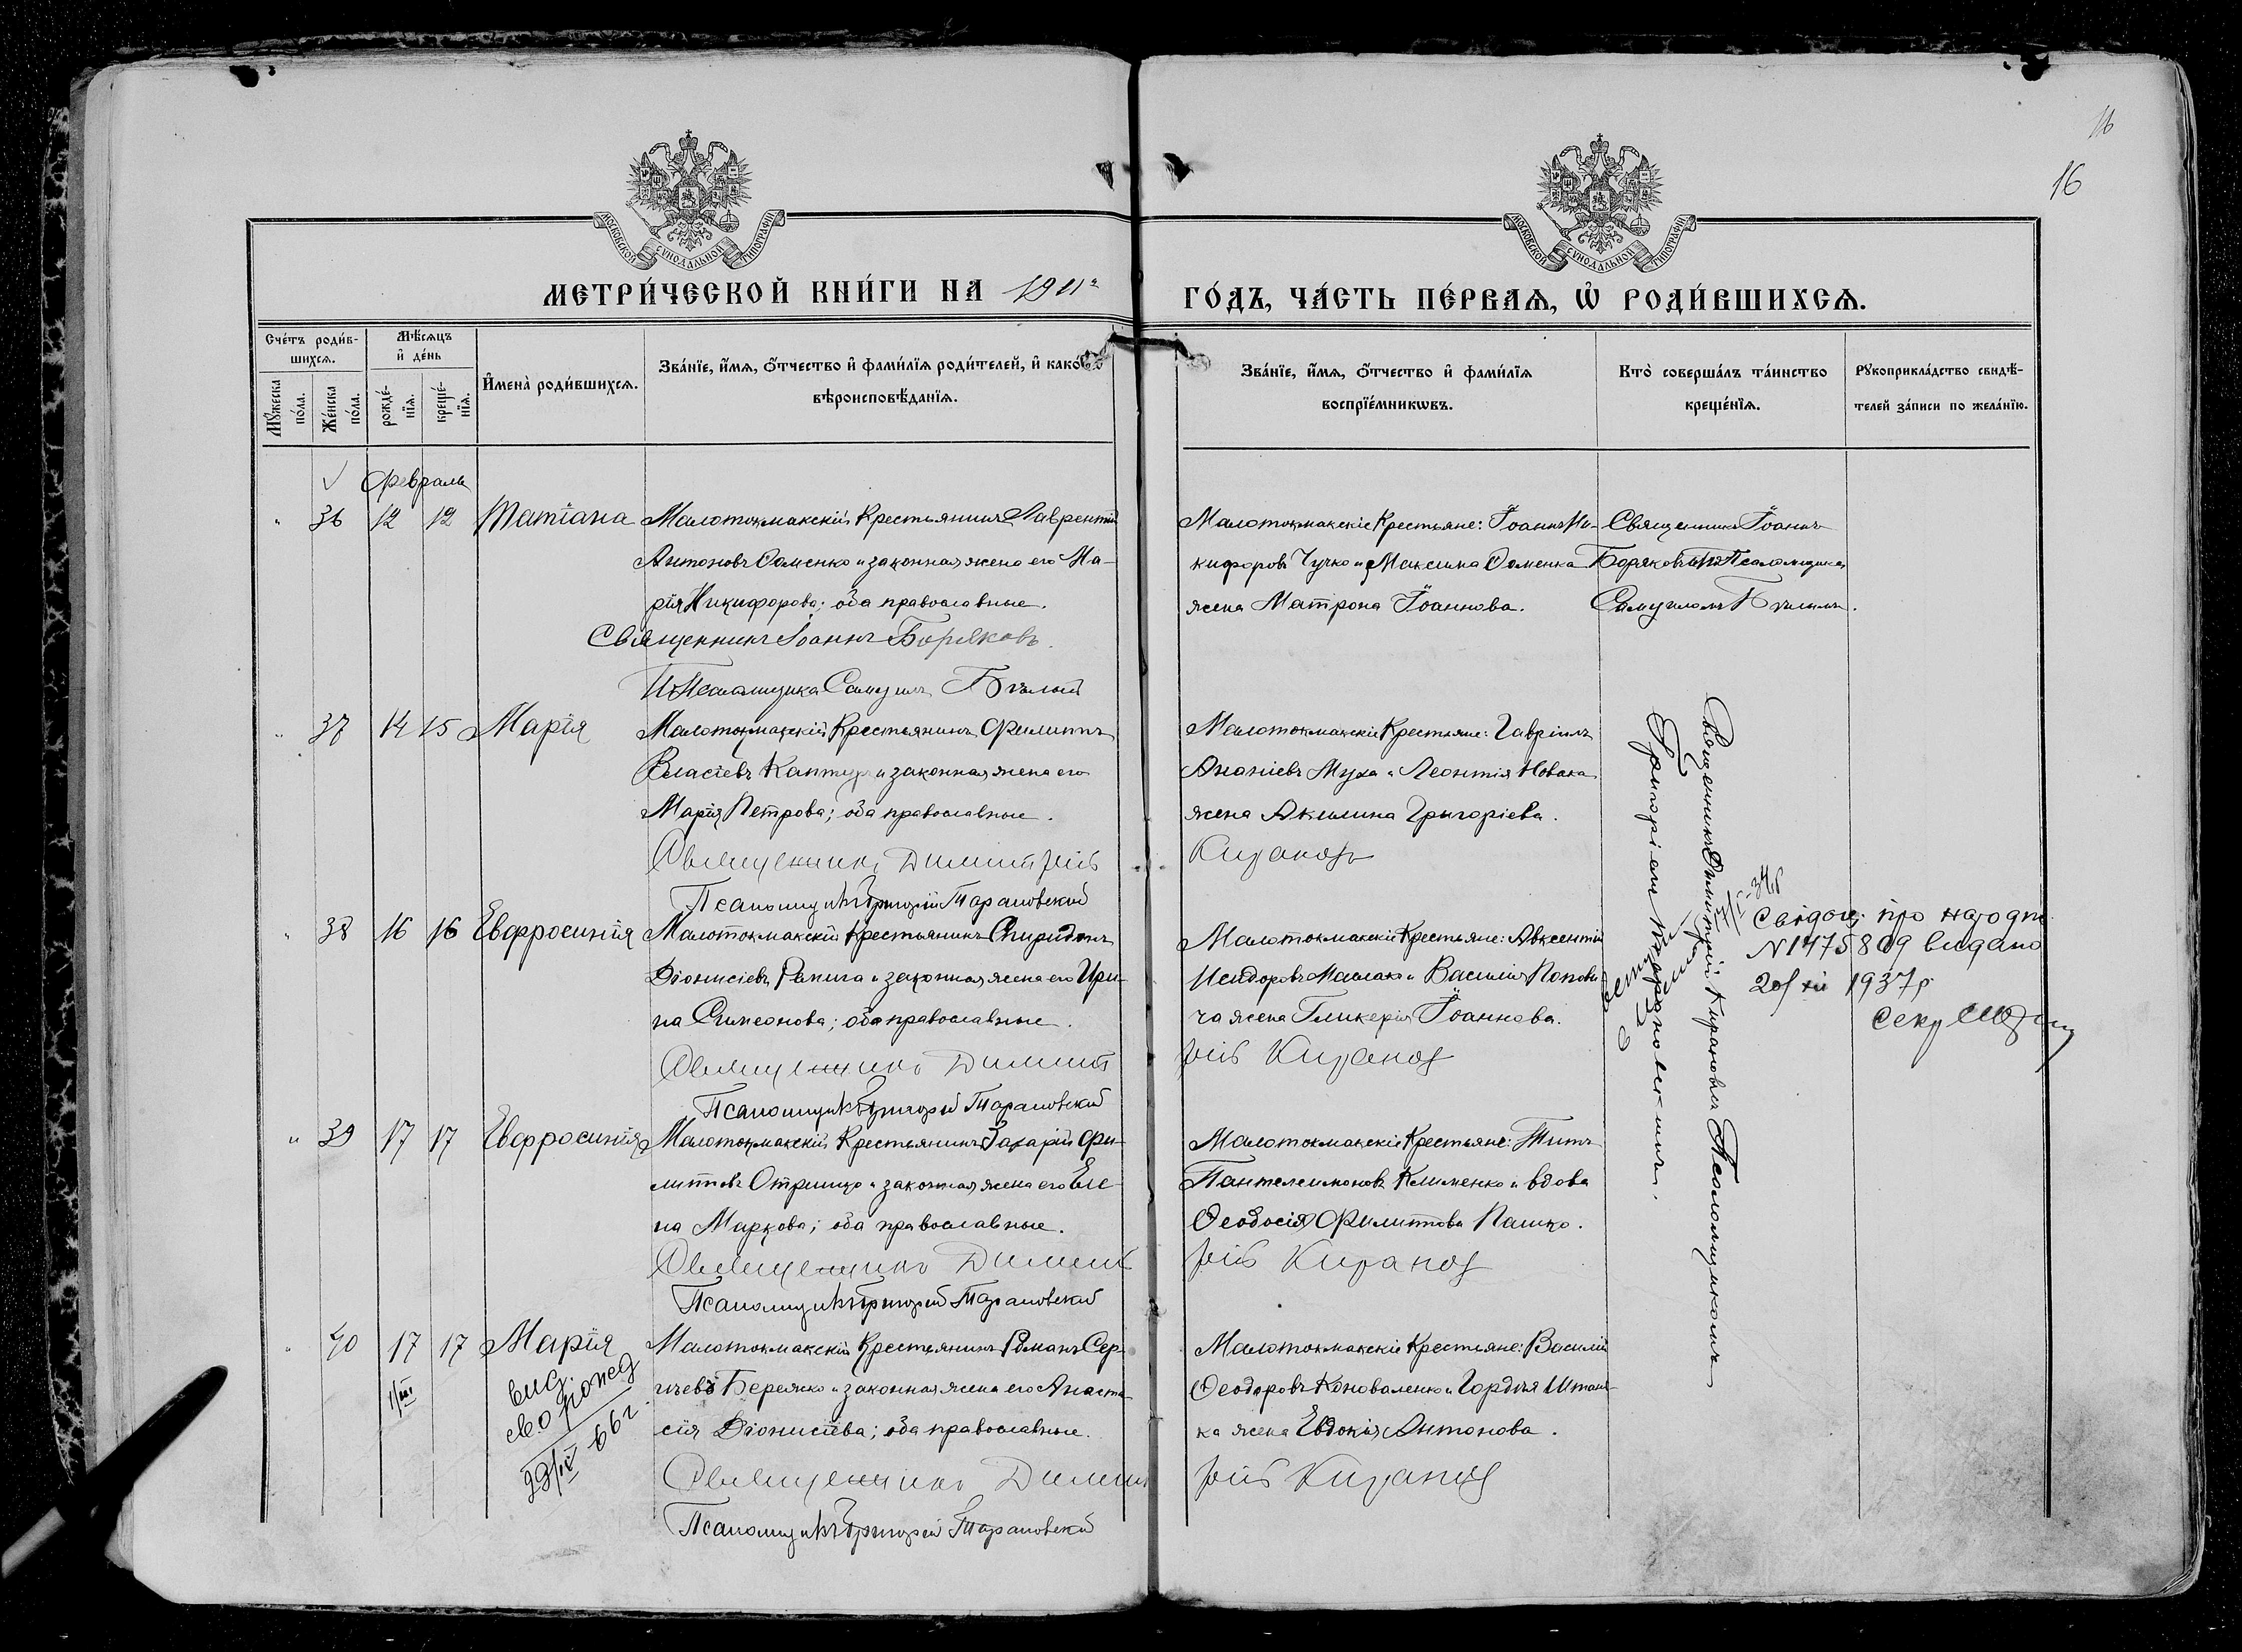 16
16
МОСКОВСКОЙ СѴНОДАЛЬНОЙ ТИПОГРАФІИ
МОСКОВСКОЙ СѴНОДАЛЬНОЙ ТИПОГРАФІИ
МЕТРИ́ЧЕСКОЙ КНИ́ГИ НА 1911 г
ГО́ДЪ, ЧА́СТЬ ПЕ́РВАѦ, Ѽ РОДИ́ВШИХСѦ.
Сче́тъ роди́в-
шихсѧ.
Мꙋ́жеска по́ла.
Же́нска по́ла.
Мѣ́сѧцъ и҆ де́нь
рожде́-нїѧ.
креще́-нїѧ.
И҆мена̀ роди́вшихсѧ.
Зва́нїе, и҆́мѧ, ѻ҆́тчество и҆ фами́лїѧ роди́телей, и҆ како́гѡ
вѣроисповѣ́данїѧ.
Зва́нїе, и҆́мѧ, ѻ҆́тчество и҆ фами́лїѧ
воспрїе́мникѡвъ.
Кто̀ соверша́лъ та́инство
креще́нїѧ.
Рꙋкоприкла́дство свидѣ́-
телей за́писи по жела́нїю.
Февраль
" 36 12 12 Татіана Малотокмакскій крестьянинъ Лаврентій
Антоновъ Саменко и законная жена его Ма-
рія Никифорова; оба православные.
Священникъ Іоаннъ Боряковъ
И. Псаломщика Самуилъ Бѣлый
Малотокмакскіе крестьяне: Іоаннъ Ни-
кифоровъ Чучко и Максима Саменка
жена Матрона Іоаннова.
Священникъ Іоаннъ
Боряковъ и Псаломщика
Самуиломъ Бѣлымъ.
" 37 14 15 Марія Малотокмакскій крестьянинъ Филиппъ
Власіевъ Каптур и законная жена его
Марія Петрова; оба православные.
Священникъ Димитрій
Псаломщикъ Григорій Тарановскій
Малотокмакскіе крестьяне: Гавріилъ
Ананіевъ Муха и Леонтія Новака
жена Акилина Григоріева.
Кирановъ
Священникъ Димитрій Кирановъ Псаломщикомъ
Григоріемъ Тарановскимъ.
" 38 16 16 Евфросинія Малотокмакскій крестьянинъ Спиридонъ
Діонисіевъ Репига и законная жена его Ири-
на Симеонова; оба православные.
Священникъ Димит
Псаломщикъ Григорій Тарановскій
Малотокмакскіе крестьяне: Авксентій
Исидоровъ Машлак и Василія Попови-
ча жена Гликерія Іоаннова.
рій Кирановъ
Свідоц. про народж
N 1475809 видано
20/XII 1937 р
Секр
" 39 17 17 Евфросинія Малотокмакскій крестьянинъ Захарій Фи-
липповъ Отришко и законная жена его Еле-
на Маркова; оба православные.
Священникъ Димит
Псаломщикъ Григорій Тарановскій
Малотокмакскіе крестьяне: Титъ
Пантелеимоновъ Клименко и вдова
Ѳеодосія Филиппова Пашко.
рій Кирановъ
" 40 17 17 Марія Малотокмакскій крестьянинъ Романъ Сер-
гіевъ Бережко и законная жена его Анаста-
сія Діонисіева; оба православные.
Священникъ Димит
Псаломщикъ Григорій Тарановскій
1/III
выд.
св. о рожд
29/IV 66 г.
Малотокмакскіе крестьяне: Василій
Ѳеодоровъ Коноваленко и Гордѣя Штань-
ка жена Евдокія Антонова.
рій Кирановъ